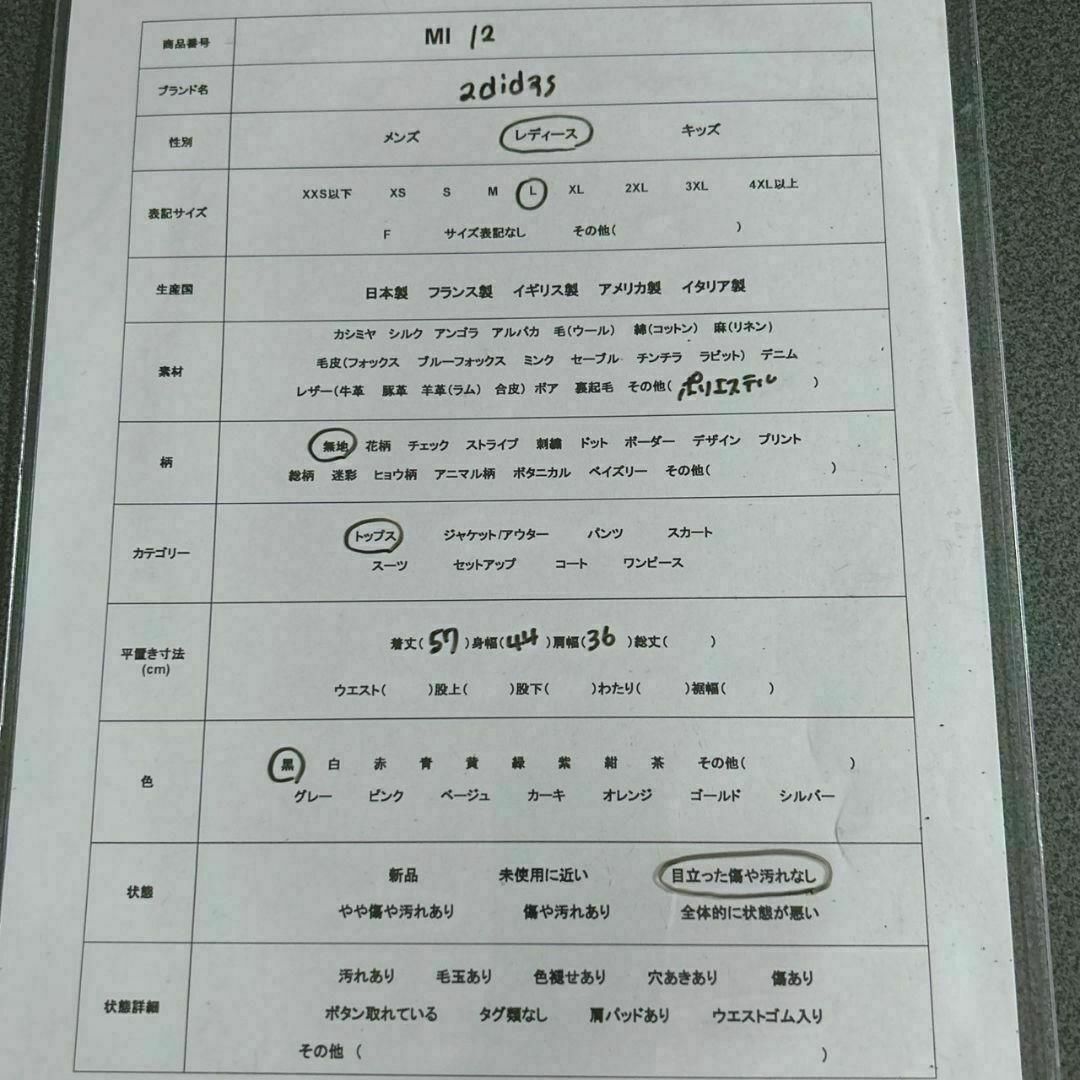 商品番号 MI 12
ブランド名 adidas
性別 メンズ レディース キッズ
表記サイズ XXS以下 XS S M L XL 2XL 3XL 4XL以上
F サイズ表記なし その他( )
生産国 日本製 フランス製 イギリス製 アメリカ製 イタリア製
素材 カシミヤ シルク アンゴラ アルパカ 毛(ウール) 綿(コットン) 麻(リネン)
毛皮(フォックス ブルーフォックス ミンク セーブル チンチラ ラビット) デニム
レザー(牛革 豚革 羊革(ラム) 合皮) ボア 裏起毛 その他( ポリエステル )
柄 無地 花柄 チェック ストライプ 刺繍 ドット ボーダー デザイン プリント
総柄 迷彩 ヒョウ柄 アニマル柄 ボタニカル ペイズリー その他( )
カテゴリー トップス ジャケット/アウター パンツ スカート
スーツ セットアップ コート ワンピース
平置き寸法 (cm) 着丈( 57 )身幅( 44 )肩幅( 36 )総丈( )
ウエスト( )股上( )股下( )わたり( )裾幅( )
色 黒 白 赤 青 黄 緑 紫 紺 茶 その他( )
グレー ピンク ベージュ カーキ オレンジ ゴールド シルバー
状態 新品 未使用に近い 目立った傷や汚れなし
やや傷や汚れあり 傷や汚れあり 全体的に状態が悪い
状態詳細 汚れあり 毛玉あり 色褪せあり 穴あきあり 傷あり
ボタン取れている タグ類なし 肩パッドあり ウエストゴム入り
その他 ( )